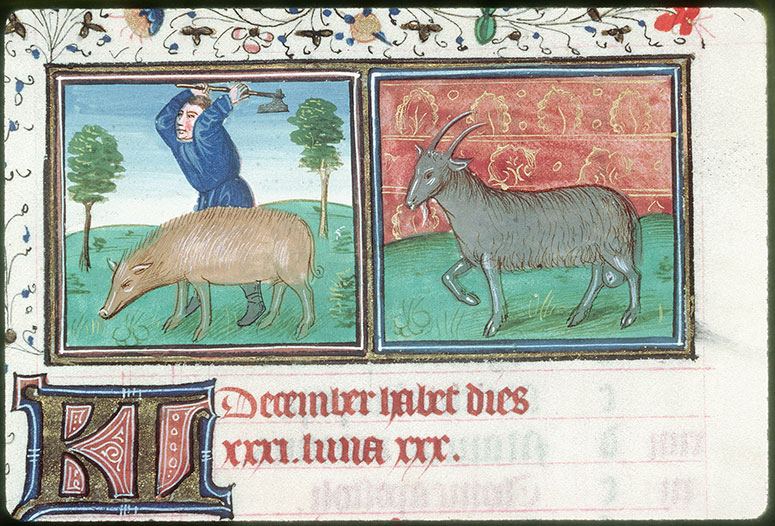 KL December habet dies
xxxi. luna xxx.